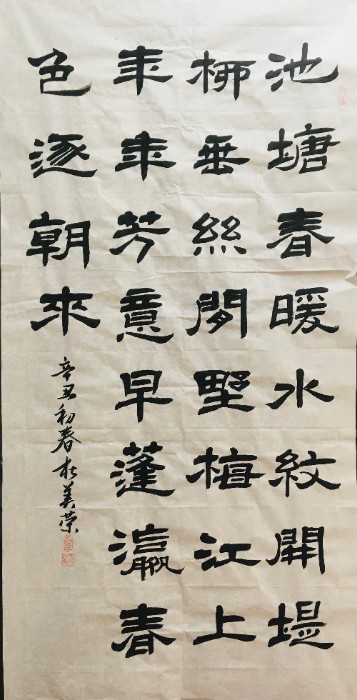 池塘春暖水紋開堤
柳垂絲間野梅江上
年年芳意早蓬瀛春
色逐朝來
辛丑初春於美荣